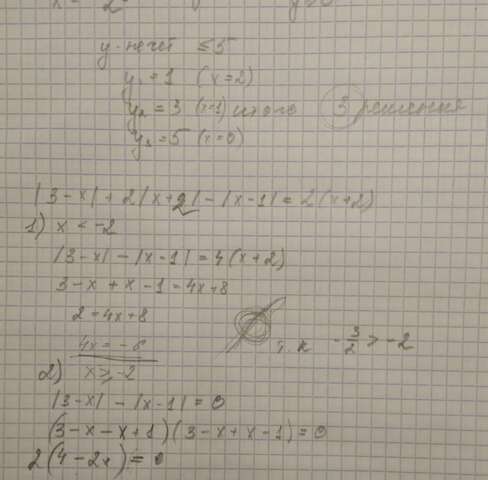 y-нечет ≤ 5
y₁ = 1 (x=2)
y₂ = 3 (x=1) итого 3 решения
y₃ = 5 (x=0)
|3-x| + 2|x+2| - |x-1| = 2(x+2)
1) x < -2
|3-x| - |x-1| = 4(x+2)
3-x + x-1 = 4x+8
2 = 4x+8
4x = -6
т.к -3/2 > -2
2) x ≥ -2
|3-x| - |x-1| = 0
(3-x-x+1)(3-x+x-1) = 0
2(4-2x) = 0